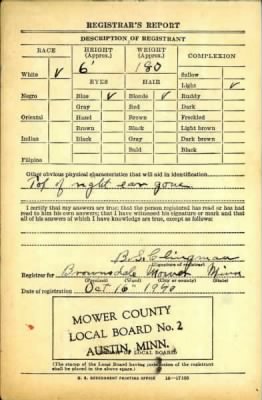 REGISTRAR'S REPORT
DESCRIPTION OF REGISTRANT
RACE HEIGHT (Approx.) WEIGHT (Approx.) COMPLEXION
6' 180 Sallow
White ✓ EYES HAIR Light ✓
Negro Blue ✓ Blonde ✓ Ruddy
Gray Red Dark
Oriental Hazel Brown Freckled
Brown Black Light brown
Indian Black Gray Dark brown
Bald Black
Filipino
Other obvious physical characteristics that will aid in identification
Top of right ear gone
I certify that my answers are true; that the person registered has read or has had
read to him his own answers; that I have witnessed his signature or mark and that
all of his answers of which I have knowledge are true, except as follows:
B. S. Clingman
(Signature of registrar)
Registrar for Brownsdale Mower Minn
(Precinct) (Ward) (City or county) (State)
Date of registration Oct 16 1940
MOWER COUNTY
LOCAL BOARD No. 2
AUSTIN, MINN.
(STAMP OF LOCAL BOARD)
(The stamp of the Local Board having jurisdiction of the registrant
shall be placed in the above space.)
U. S. GOVERNMENT PRINTING OFFICE 16—17105